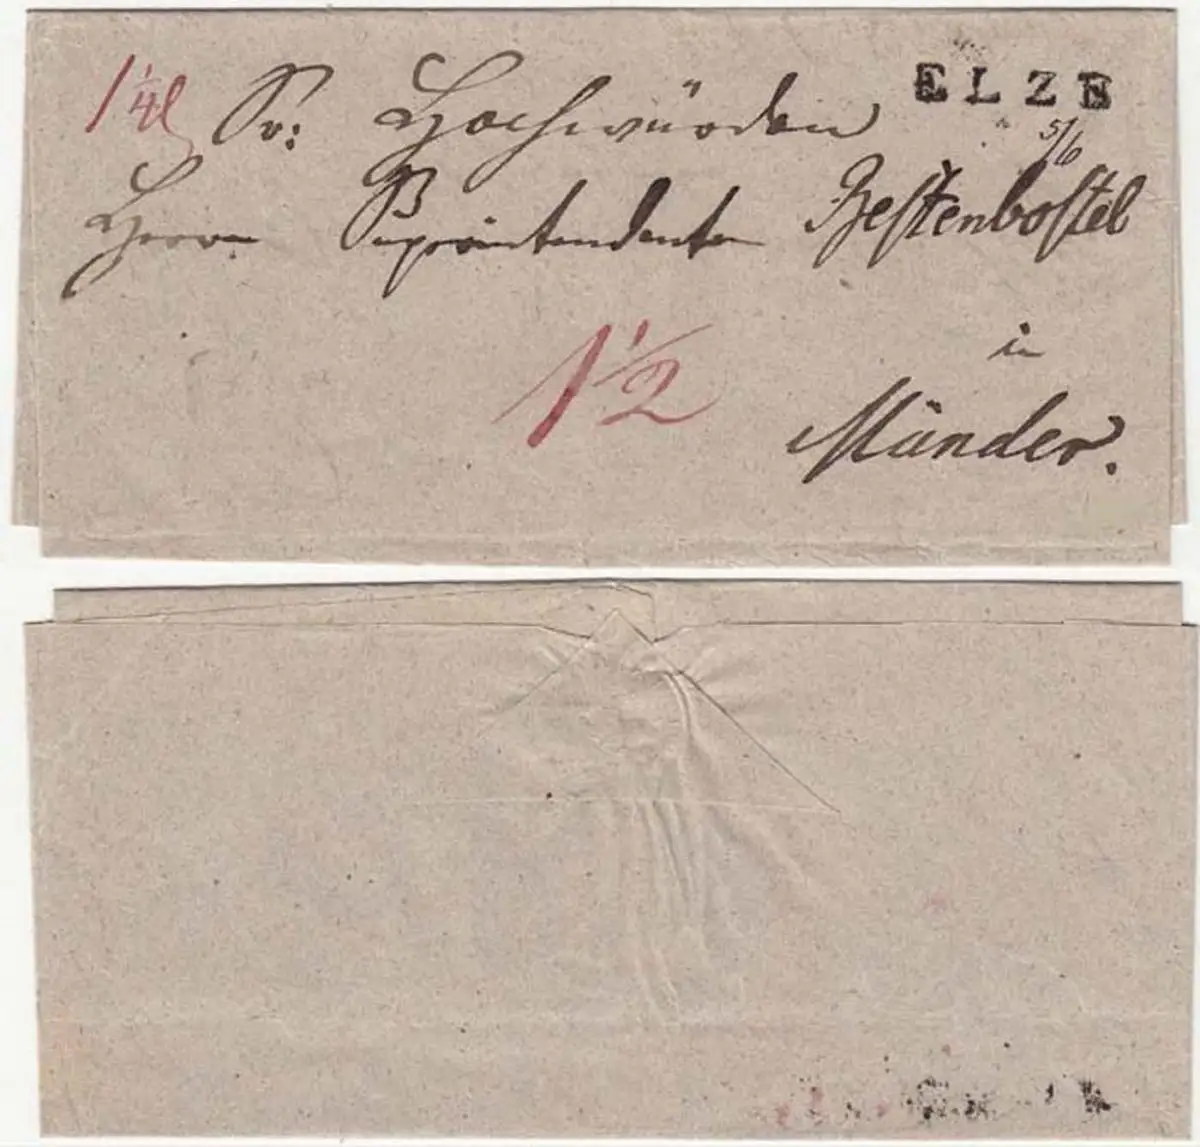 1 1/4 Sr: Hochwürden ELZE
5/6
Herrn Superintendenten Bestenbostel
1 1/2
in
Münder.